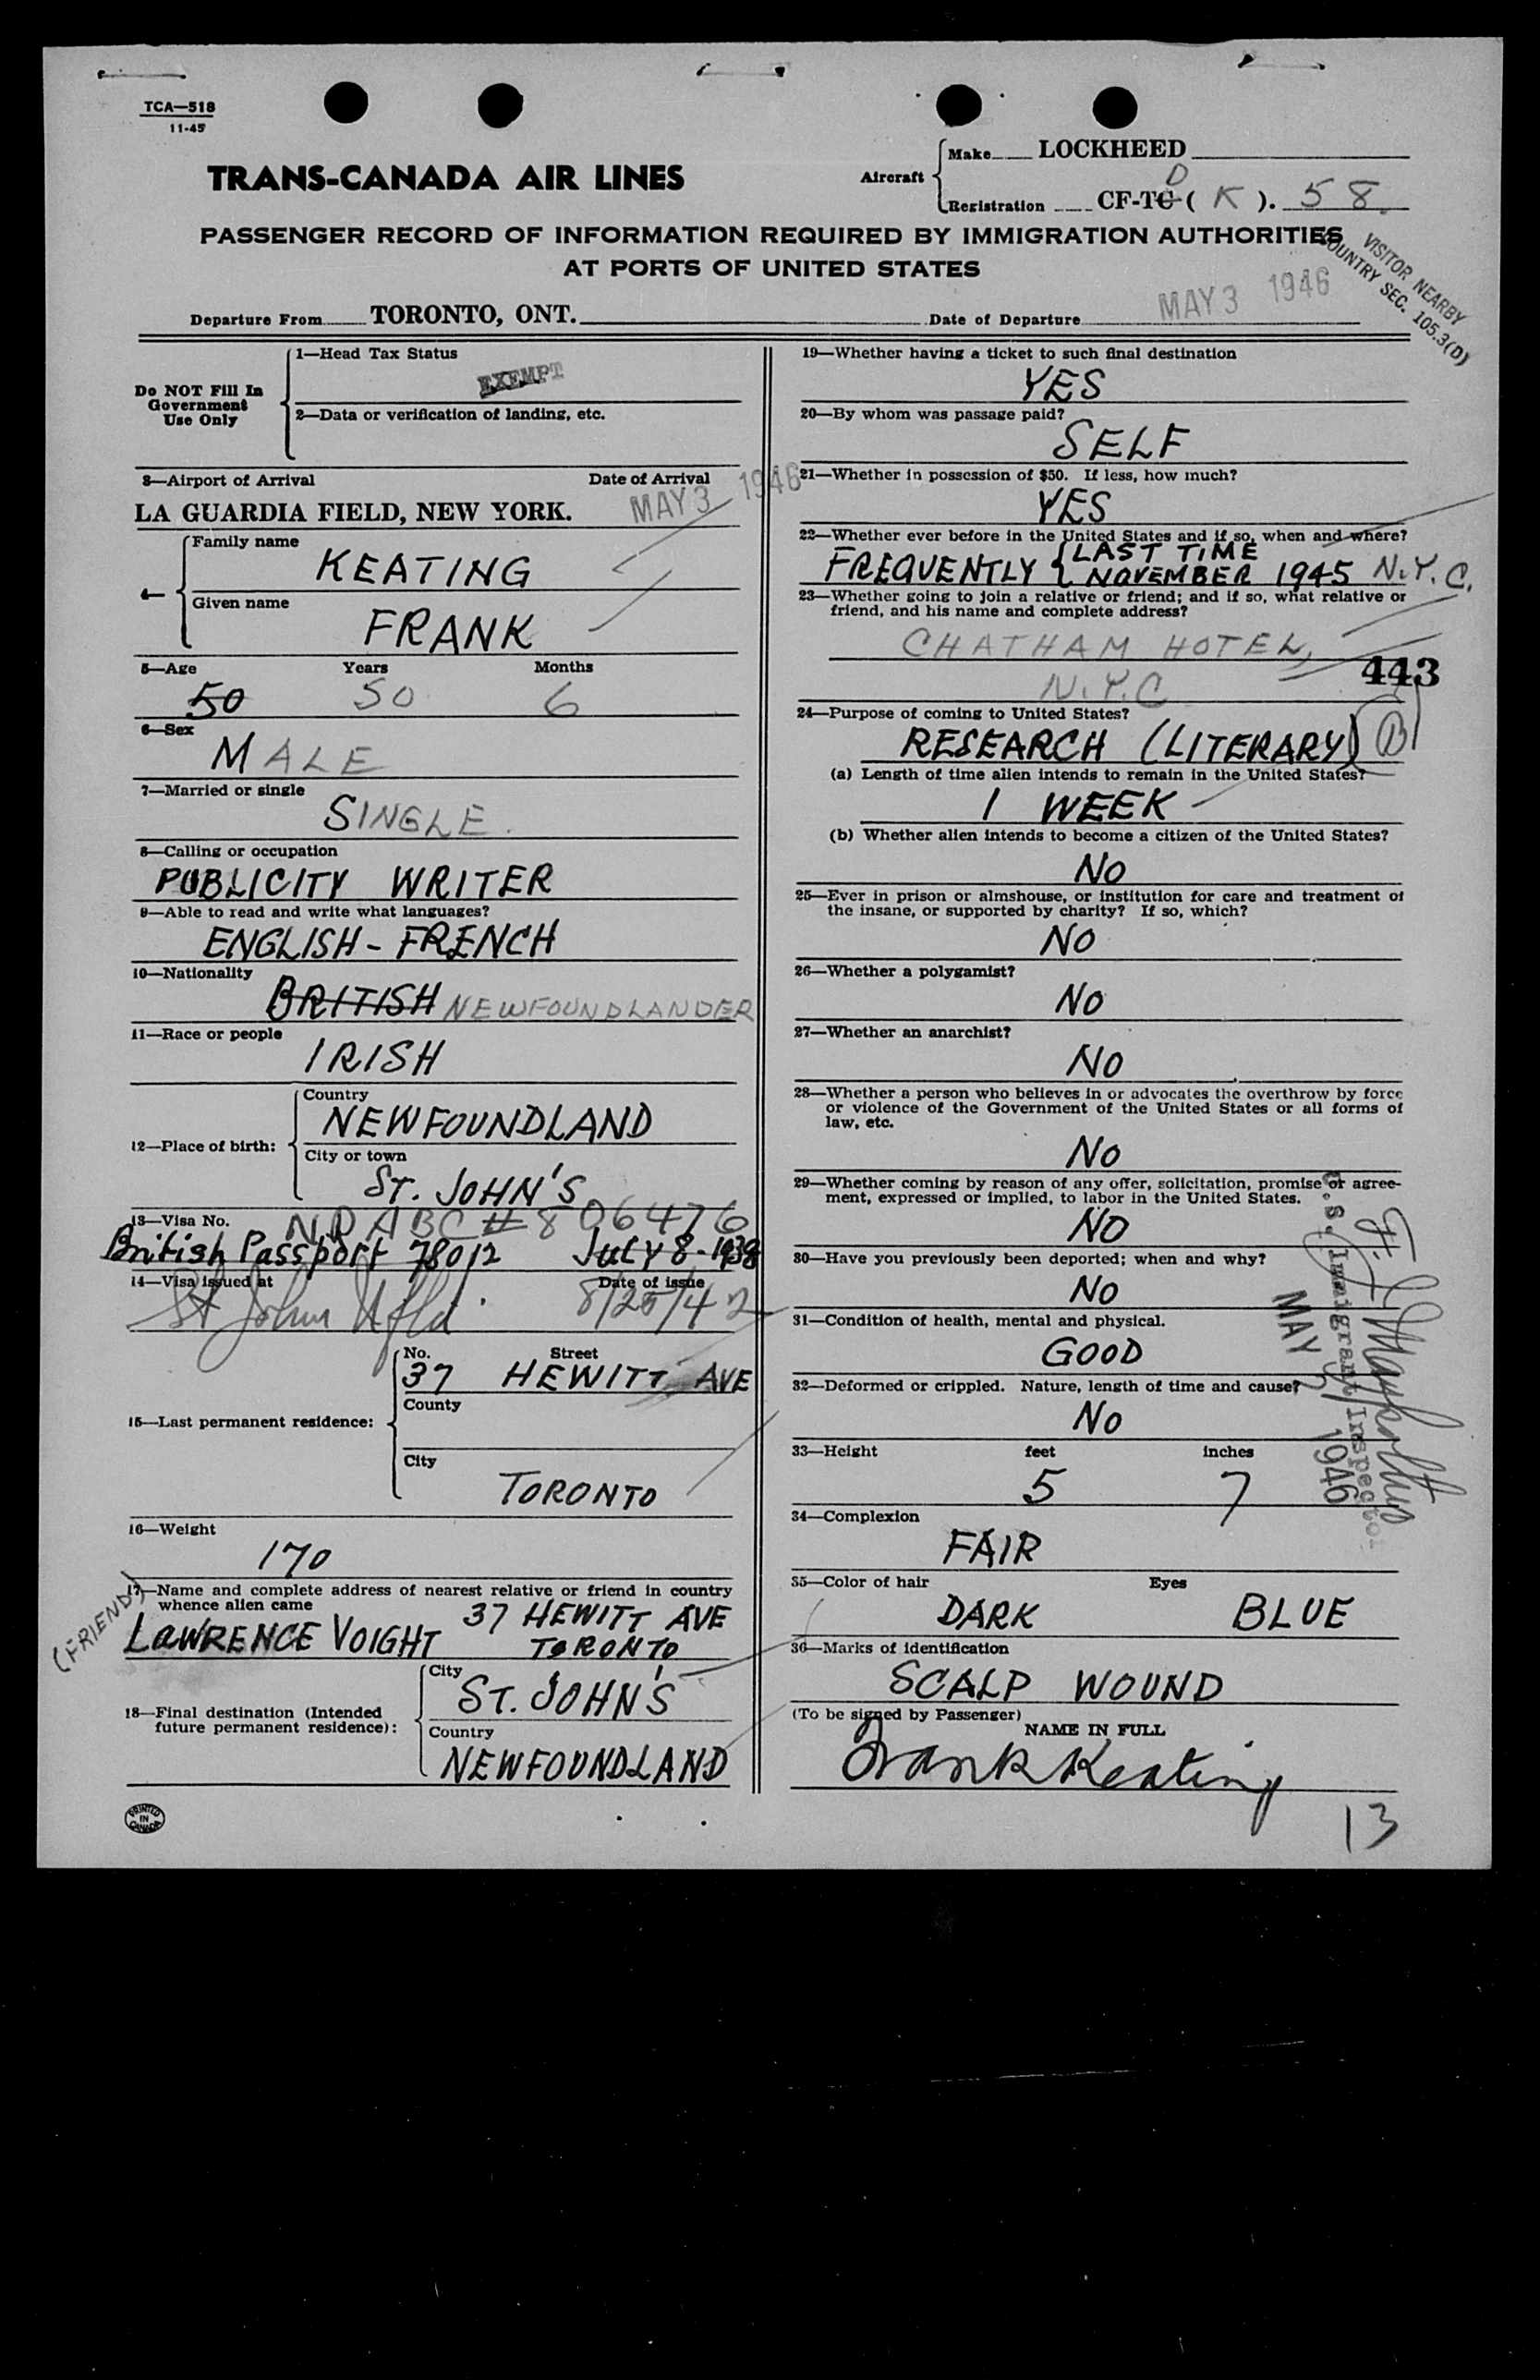 TCA—518
11-45
TRANS-CANADA AIR LINES
Aircraft
Make LOCKHEED
D
Registration CF-TC ( K ). 58.
PASSENGER RECORD OF INFORMATION REQUIRED BY IMMIGRATION AUTHORITIES
AT PORTS OF UNITED STATES
VISITOR NEARBY
COUNTRY SEC. 105.3(D)
Departure From TORONTO, ONT. Date of Departure MAY 3 1946
Do NOT Fill In
Government
Use Only
1—Head Tax Status
EXEMPT
2—Data or verification of landing, etc.
3—Airport of Arrival Date of Arrival
LA GUARDIA FIELD, NEW YORK. MAY 3 1946
4—
Family name
KEATING
Given name
FRANK
5—Age Years Months
50 50 6
6—Sex
MALE
7—Married or single
SINGLE.
8—Calling or occupation
PUBLICITY WRITER
9—Able to read and write what languages?
ENGLISH - FRENCH
10—Nationality
BRITISH NEWFOUNDLANDER
11—Race or people
IRISH
12—Place of birth:
Country
NEWFOUNDLAND
City or town
ST. JOHN'S
13—Visa No. NR ABC # 806476
British Passport 78012 JULY 8-1938
14—Visa issued at Date of issue
St Johns Nfld. 8/25/42
15—Last permanent residence:
No. Street
37 HEWITT AVE
County
City
TORONTO
16—Weight
170
17—Name and complete address of nearest relative or friend in country
whence alien came
(FRIEND)
LAWRENCE VOIGHT 37 HEWITT AVE
TORONTO
18—Final destination (Intended
future permanent residence):
City
ST. JOHN'S
Country
NEWFOUNDLAND
PRINTED
IN
CANADA
19—Whether having a ticket to such final destination
YES
20—By whom was passage paid?
SELF
21—Whether in possession of $50. If less, how much?
YES
22—Whether ever before in the United States and if so, when and where?
FREQUENTLY { LAST TIME
NOVEMBER 1945 N.Y.C.
23—Whether going to join a relative or friend; and if so, what relative or
friend, and his name and complete address?
CHATHAM HOTEL,
443
N.Y.C
24—Purpose of coming to United States?
RESEARCH (LITERARY) B
(a) Length of time alien intends to remain in the United States?
1 WEEK
(b) Whether alien intends to become a citizen of the United States?
NO
25—Ever in prison or almshouse, or institution for care and treatment of
the insane, or supported by charity? If so, which?
NO
26—Whether a polygamist?
NO
27—Whether an anarchist?
NO
28—Whether a person who believes in or advocates the overthrow by force
or violence of the Government of the United States or all forms of
law, etc.
NO
29—Whether coming by reason of any offer, solicitation, promise or agree-
ment, expressed or implied, to labor in the United States.
NO
30—Have you previously been deported; when and why?
NO
31—Condition of health, mental and physical.
GOOD
32—Deformed or crippled. Nature, length of time and cause?
NO
33—Height feet inches
5 7
34—Complexion
FAIR
35—Color of hair Eyes
DARK BLUE
36—Marks of identification
SCALP WOUND
(To be signed by Passenger)
NAME IN FULL
Frank Keating
13
U.S. Immigrant Inspector
MAY 3 1946